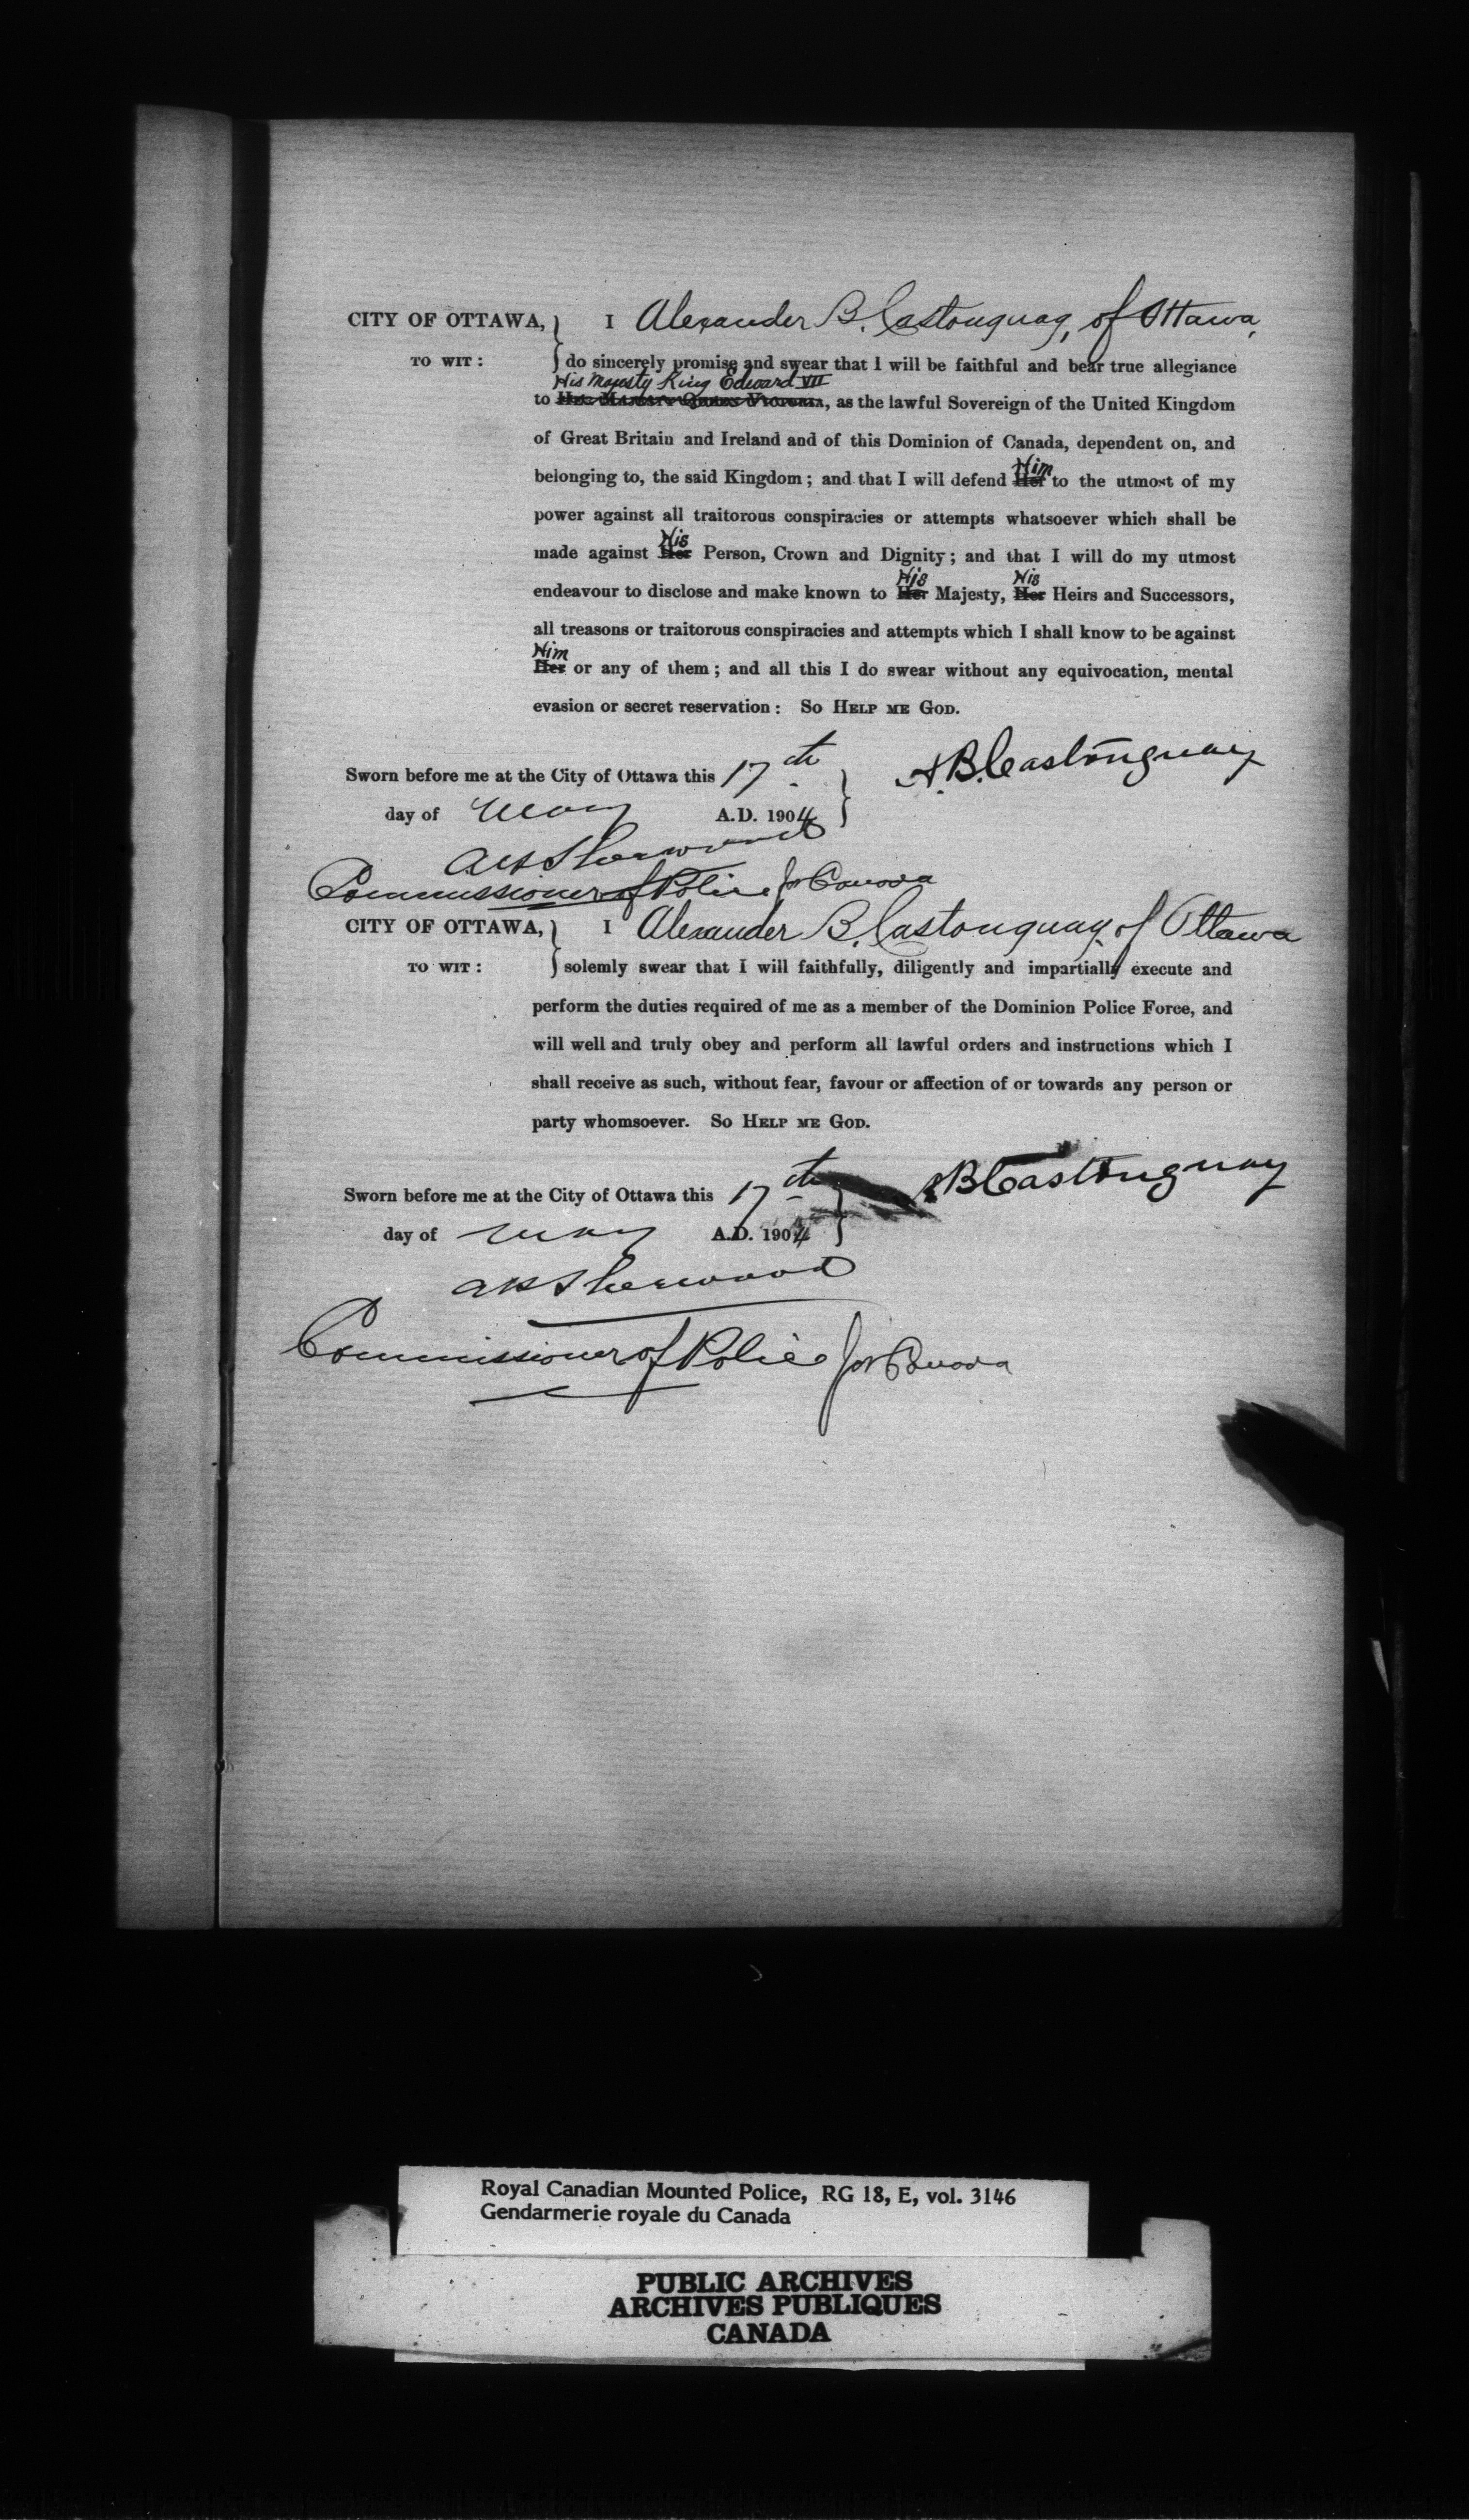 CITY OF OTTAWA, I Alexander B. Castonguay, of Ottawa,
TO WIT: do sincerely promise and swear that I will be faithful and bear true allegiance
His Majesty King Edward VII
to HER MAJESTY QUEEN VICTORIA, as the lawful Sovereign of the United Kingdom
of Great Britain and Ireland and of this Dominion of Canada, dependent on, and
Him
belonging to, the said Kingdom; and that I will defend Her to the utmost of my
power against all traitorous conspiracies or attempts whatsoever which shall be
His
made against Her Person, Crown and Dignity; and that I will do my utmost
His His
endeavour to disclose and make known to Her Majesty, Her Heirs and Successors,
all treasons or traitorous conspiracies and attempts which I shall know to be against
Him
Her or any of them; and all this I do swear without any equivocation, mental
evasion or secret reservation: SO HELP ME GOD.
Sworn before me at the City of Ottawa this 17th A.B. Castonguay
day of May A.D. 1904
APSherwood
Commissioner of Police for Canada
CITY OF OTTAWA, I Alexander B. Castonguay, of Ottawa
TO WIT: solemly swear that I will faithfully, diligently and impartially execute and
perform the duties required of me as a member of the Dominion Police Force, and
will well and truly obey and perform all lawful orders and instructions which I
shall receive as such, without fear, favour or affection of or towards any person or
party whomsoever. SO HELP ME GOD.
Sworn before me at the City of Ottawa this 17th AB Castonguay
day of May A.D. 1904
APSherwood
Commissioner of Police for Canada
Royal Canadian Mounted Police, RG 18, E, vol. 3146
Gendarmerie royale du Canada
PUBLIC ARCHIVES
ARCHIVES PUBLIQUES
CANADA